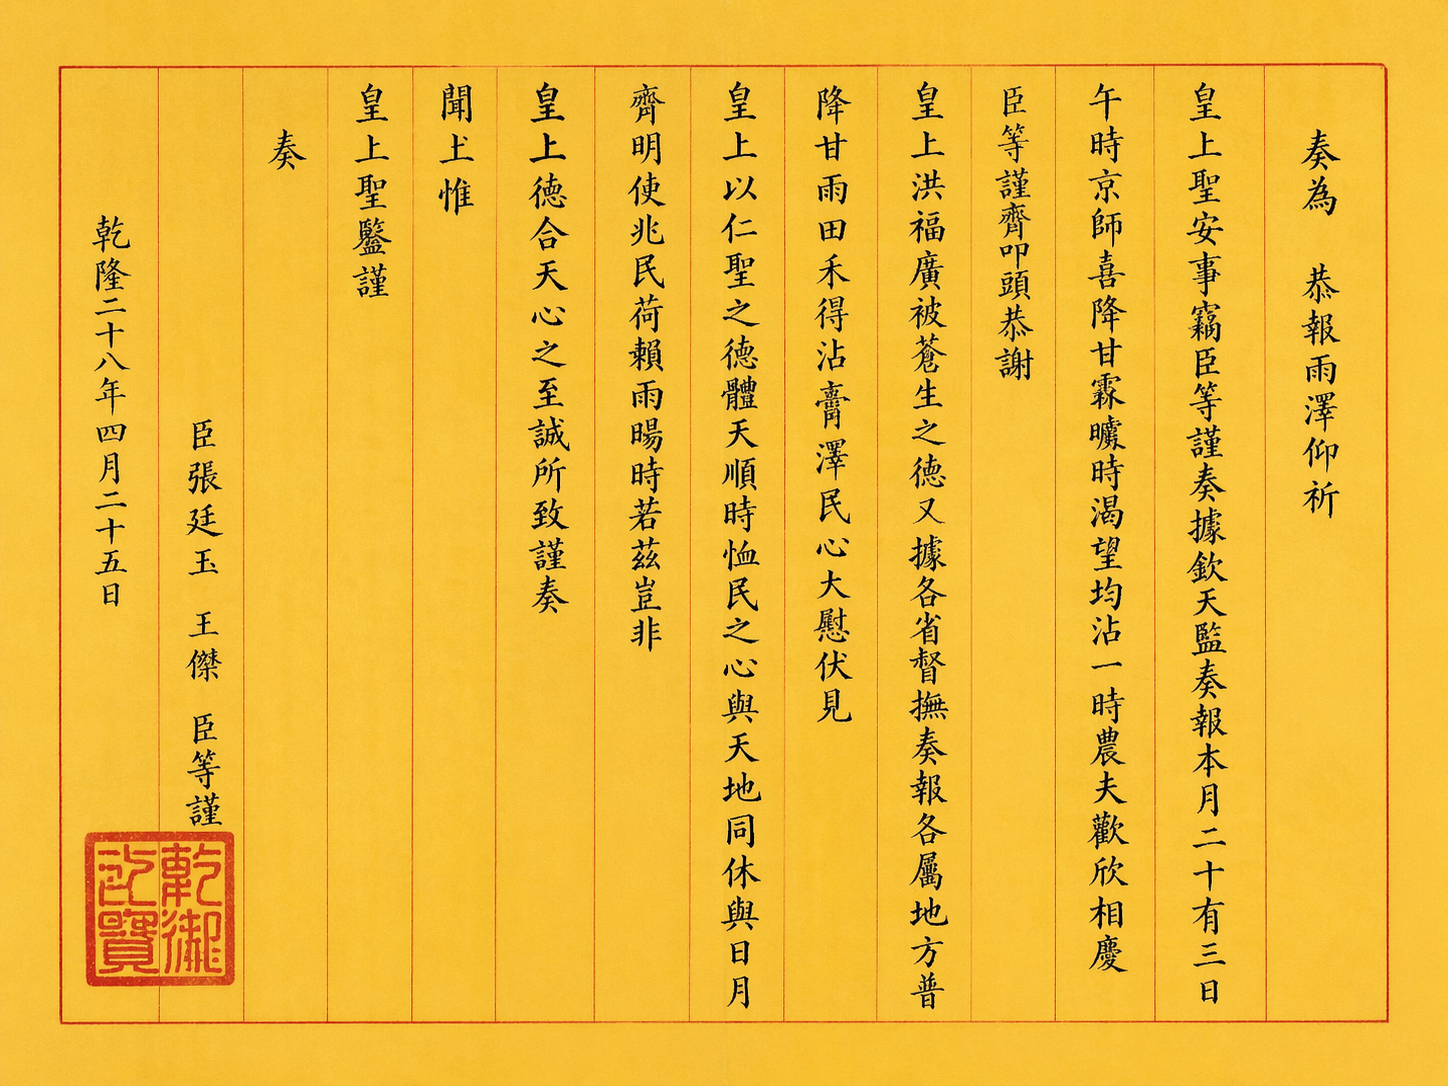 奏為　恭報雨澤仰祈
皇上聖安事竊臣等謹奏據欽天監奏報本月二十有三日
午時京師喜降甘霖曠時渴望均沾一時農夫歡欣相慶
臣等謹齊叩頭恭謝
皇上洪福廣被蒼生之德又據各省督撫奏報各屬地方普
降甘雨田禾得沾膏澤民心大慰伏見
皇上以仁聖之德體天順時恤民之心與天地同休與日月
齊明使兆民荷賴雨暘時若茲豈非
皇上德合天心之至誠所致謹奏
聞上惟
皇上聖鑒謹
奏
臣張廷玉　王傑　臣等謹
乾隆二十八年四月二十五日
乾御
寶